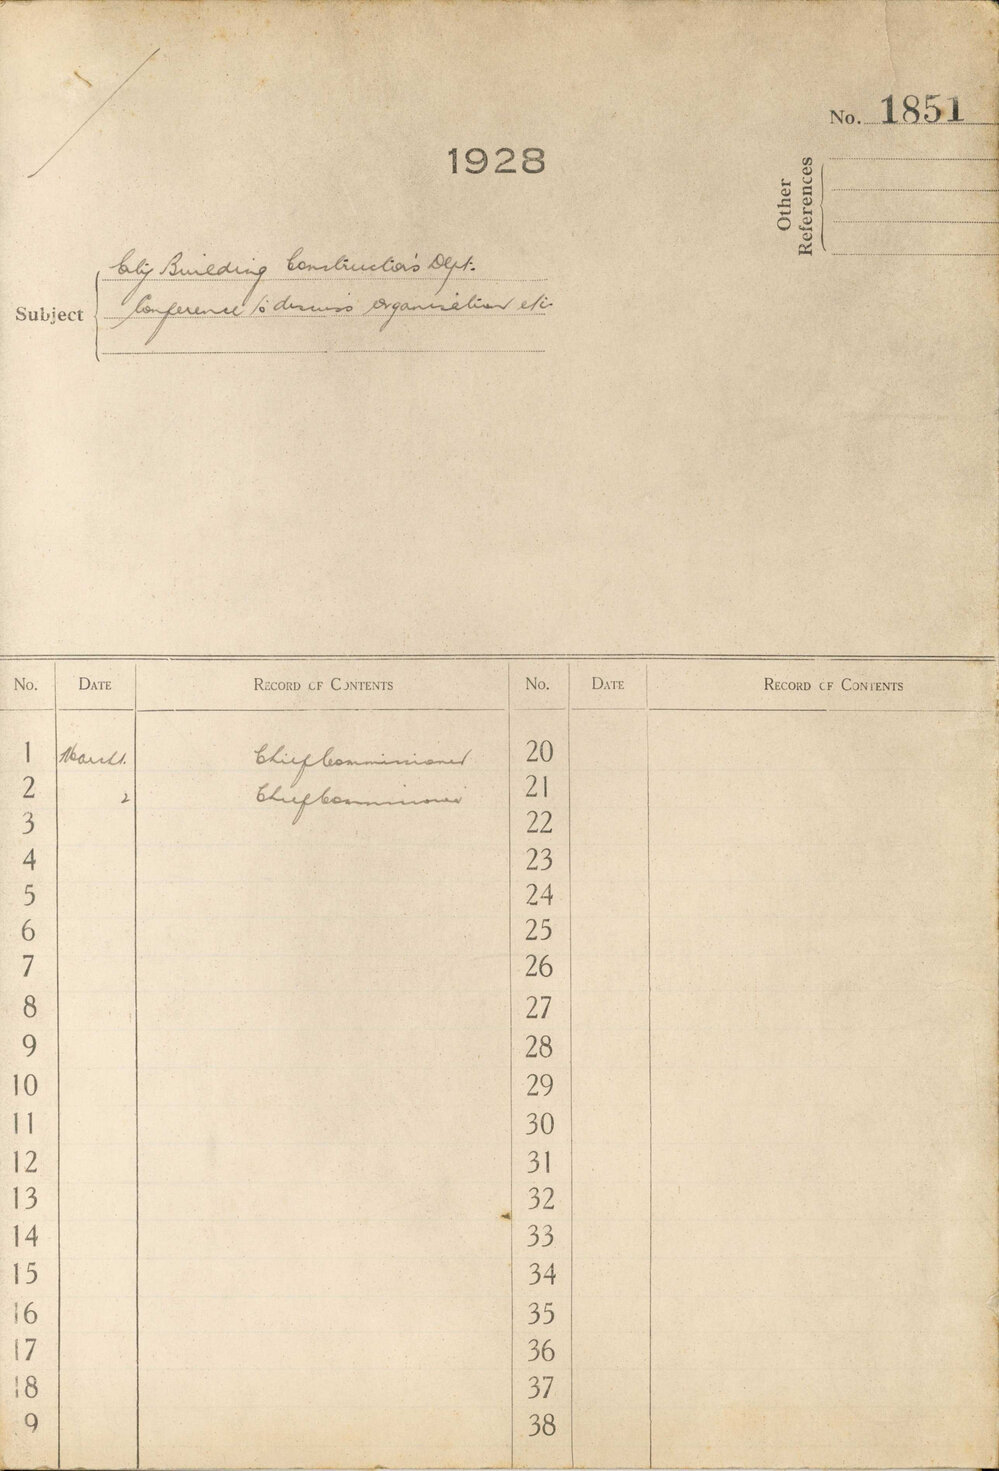 No. 1851
1928
Other
References
City Building Construction's Dept.
Subject
Conference to discuss organisation etc
No. DATE RECORD OF CONTENTS No. DATE RECORD OF CONTENTS
1 March 1. Chief Commissioner 20
2 2 Chief Commissioner 21
3 22
4 23
5 24
6 25
7 26
8 27
9 28
10 29
11 30
12 31
13 32
14 33
15 34
16 35
17 36
18 37
9 38